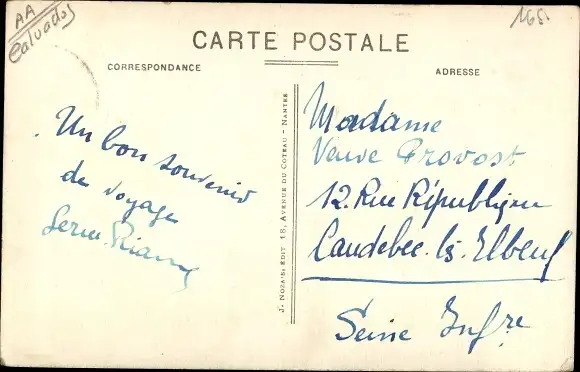 AA
Calvados
165.
CARTE POSTALE
CORRESPONDANCE
ADRESSE
Un bon souvenir
de voyage
J. Nozais Édit 18, Avenue du Coteau - Nantes
Madame
Veuve Provost
12. Rue République
Caudebec-ls-Elbeuf
Seine Infre